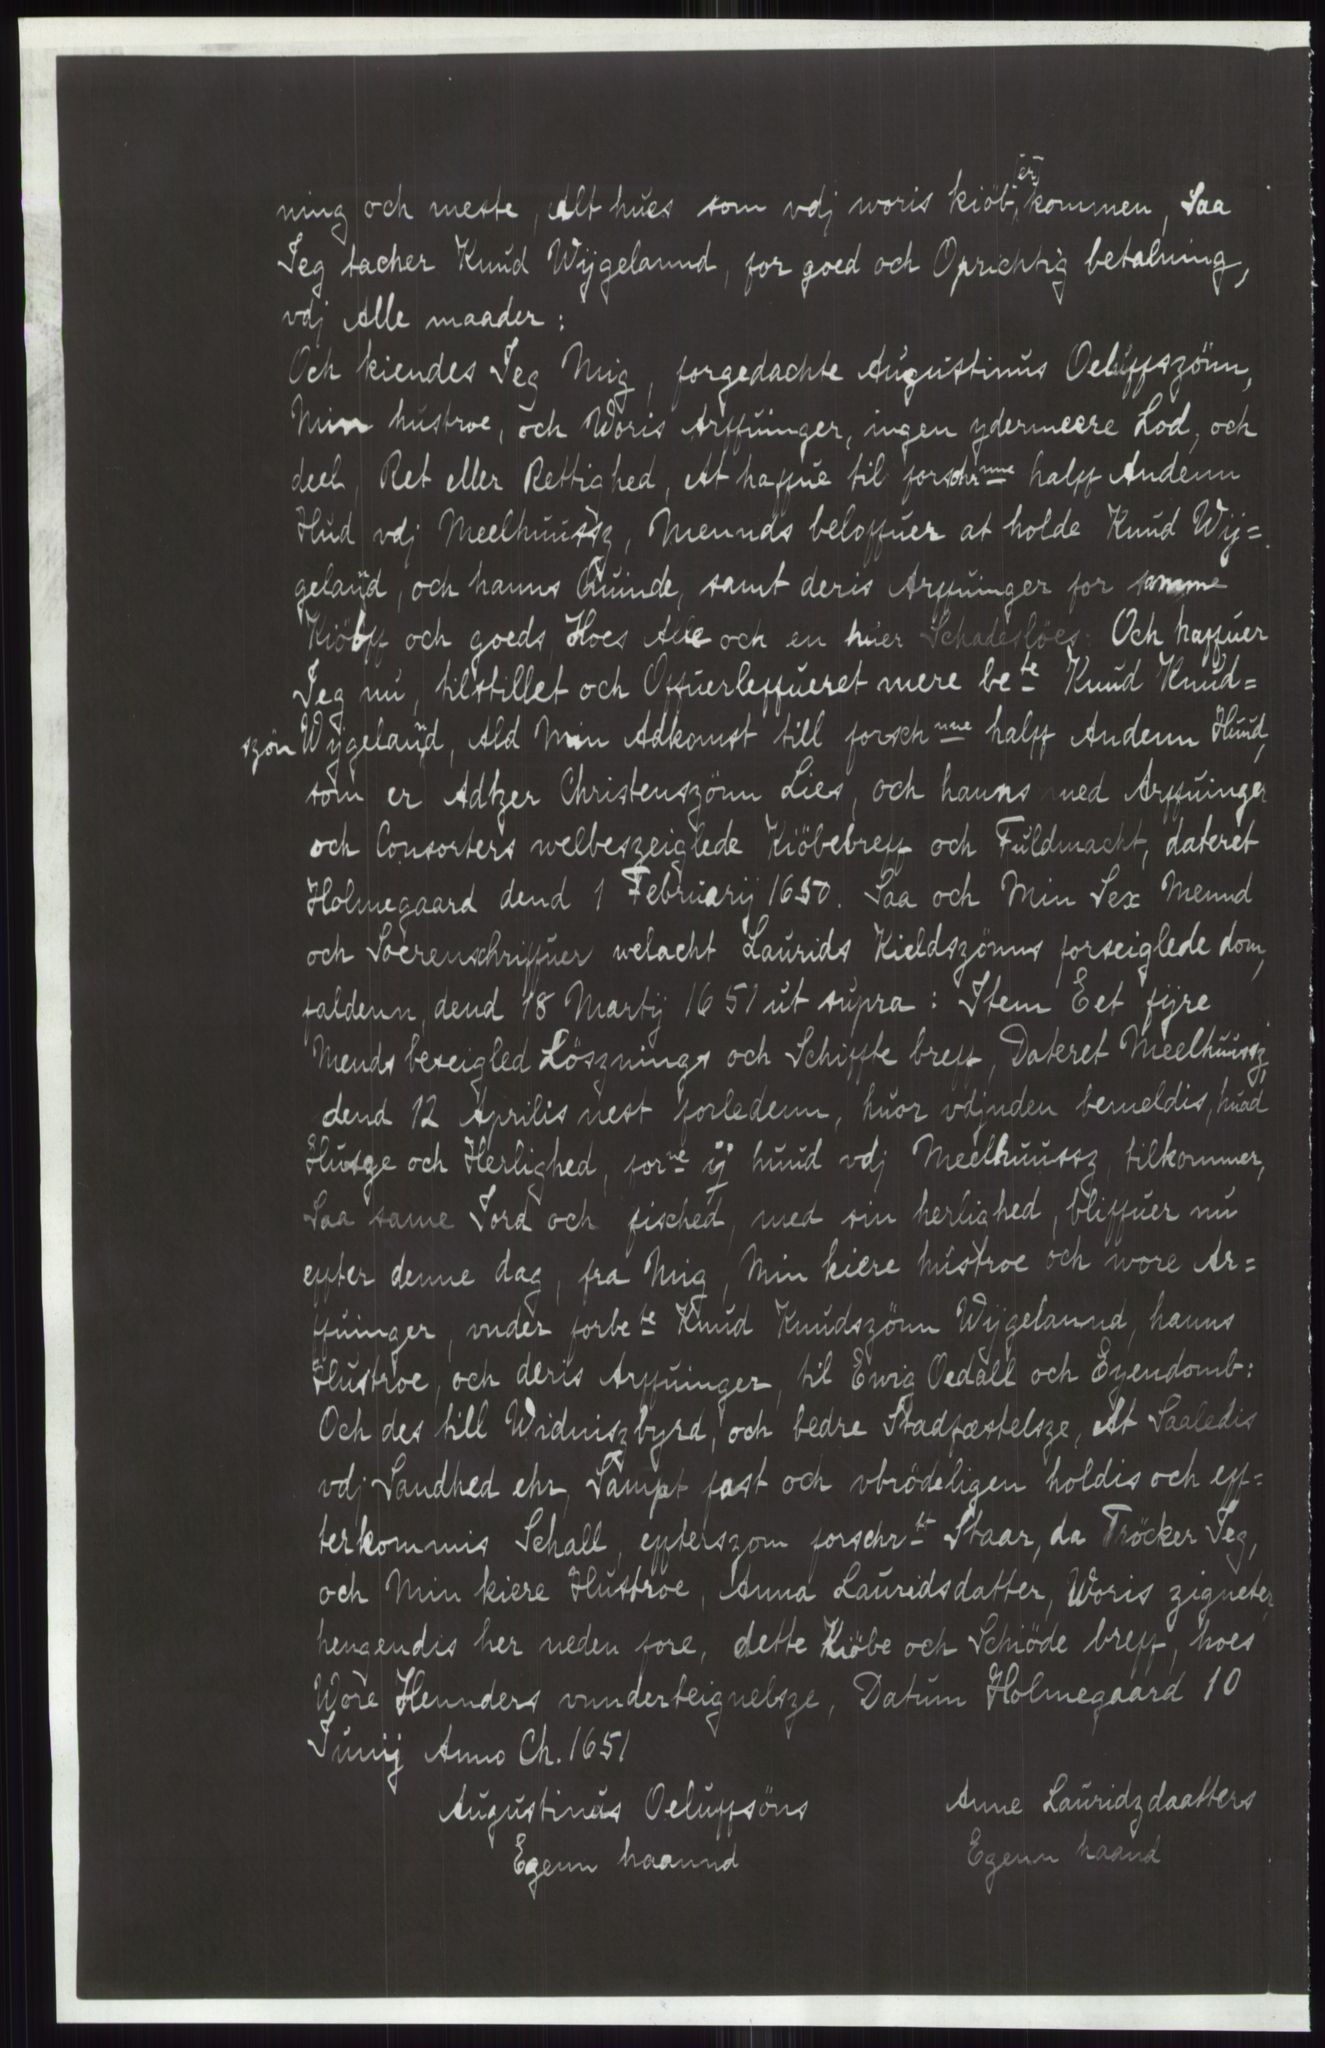 ning och meste, Alt hues som vdj woris kiöb, [er] kommen, Saa
Jeg tacher Knud Wijgelannd, for goed och Oprichtig betalning,
vdj Alle maader:
Och kiendes Jeg Mig, forgedachte Augustinus Oeluffszönn,
Min hustroe, och Woris Arffuinger, ingen ydermeere Lod, och
deel, Ret eller Rettighed, At haffue til forschrnne halff Andenn
Hud vdj Meelhuussz, Mennds beloffuer at holde Knud Wij=
gelannd, och hanns Quinde, samt deris Arffuinger for samme
Kiöbff och goeds, Hoes Alle och en huer Schadeslöes: Och haffuer
Jeg nu, tilstillet och Offuerleffueret mere bete Knud Knud=
szön Wijgelannd, Ald Min Adkomst till forschnne halff Andenn Huud,
som er Adtzer Christenszönn Lies, och hanns med Arffuinger
och Consorters welbeszeiglede Kiöbebreff och Fuldmacht, dateret
Holmegaard dend 1 Februarij 1650. Saa och Min Sex Mennd
och Soerenschriffuer welacht Laurids Kieldszönns forseiglede dom,
faldenn, dend 18 Martij 1651 ut supra: Item Eet fijre
Mends beseigled Lösznings och Schiffte breff, Dateret Meelhuussz,
dend 12 Aprilis nest forledenn, huor vdjnden bemeldis, huad
Husze och Herlighed, forne ij huud vdj Meelhuussz, tilkommer,
Saa same Jord och fisched, med sin herlighed, bliffuer nu
effter denne dag, fra Mig, Min kiere hustroe och wore Ar=
ffuinger, vnder forbete Knud Knudszönn Wijgelannd, hanns
Hustroe, och deris Arffuinger, til Ewig Oedall och Eyendomb:
Och des till Widniszbyrd, och bedre Stadfæstelsze, At Saaledis
vdj Sandhed ehr, Sampt fast och vbrödeligen holdis och eff=
terkommis Schall, effterszom forschrtt Staar, da Tröcker Jeg,
och Min kiere Hustroe, Anna Lauridsdatter, Woris zigneter,
hengendis her neden fore, dette Kiöbe och Schiöde breff, hoes
Wore Hennders vnnderteignelsze, Datum Holmegaard 10
Junij Anno Ch. 1651
Augustinus Oeluffsöns
Egenn haannd
Anne Lauridzdaatters
Egenn haand